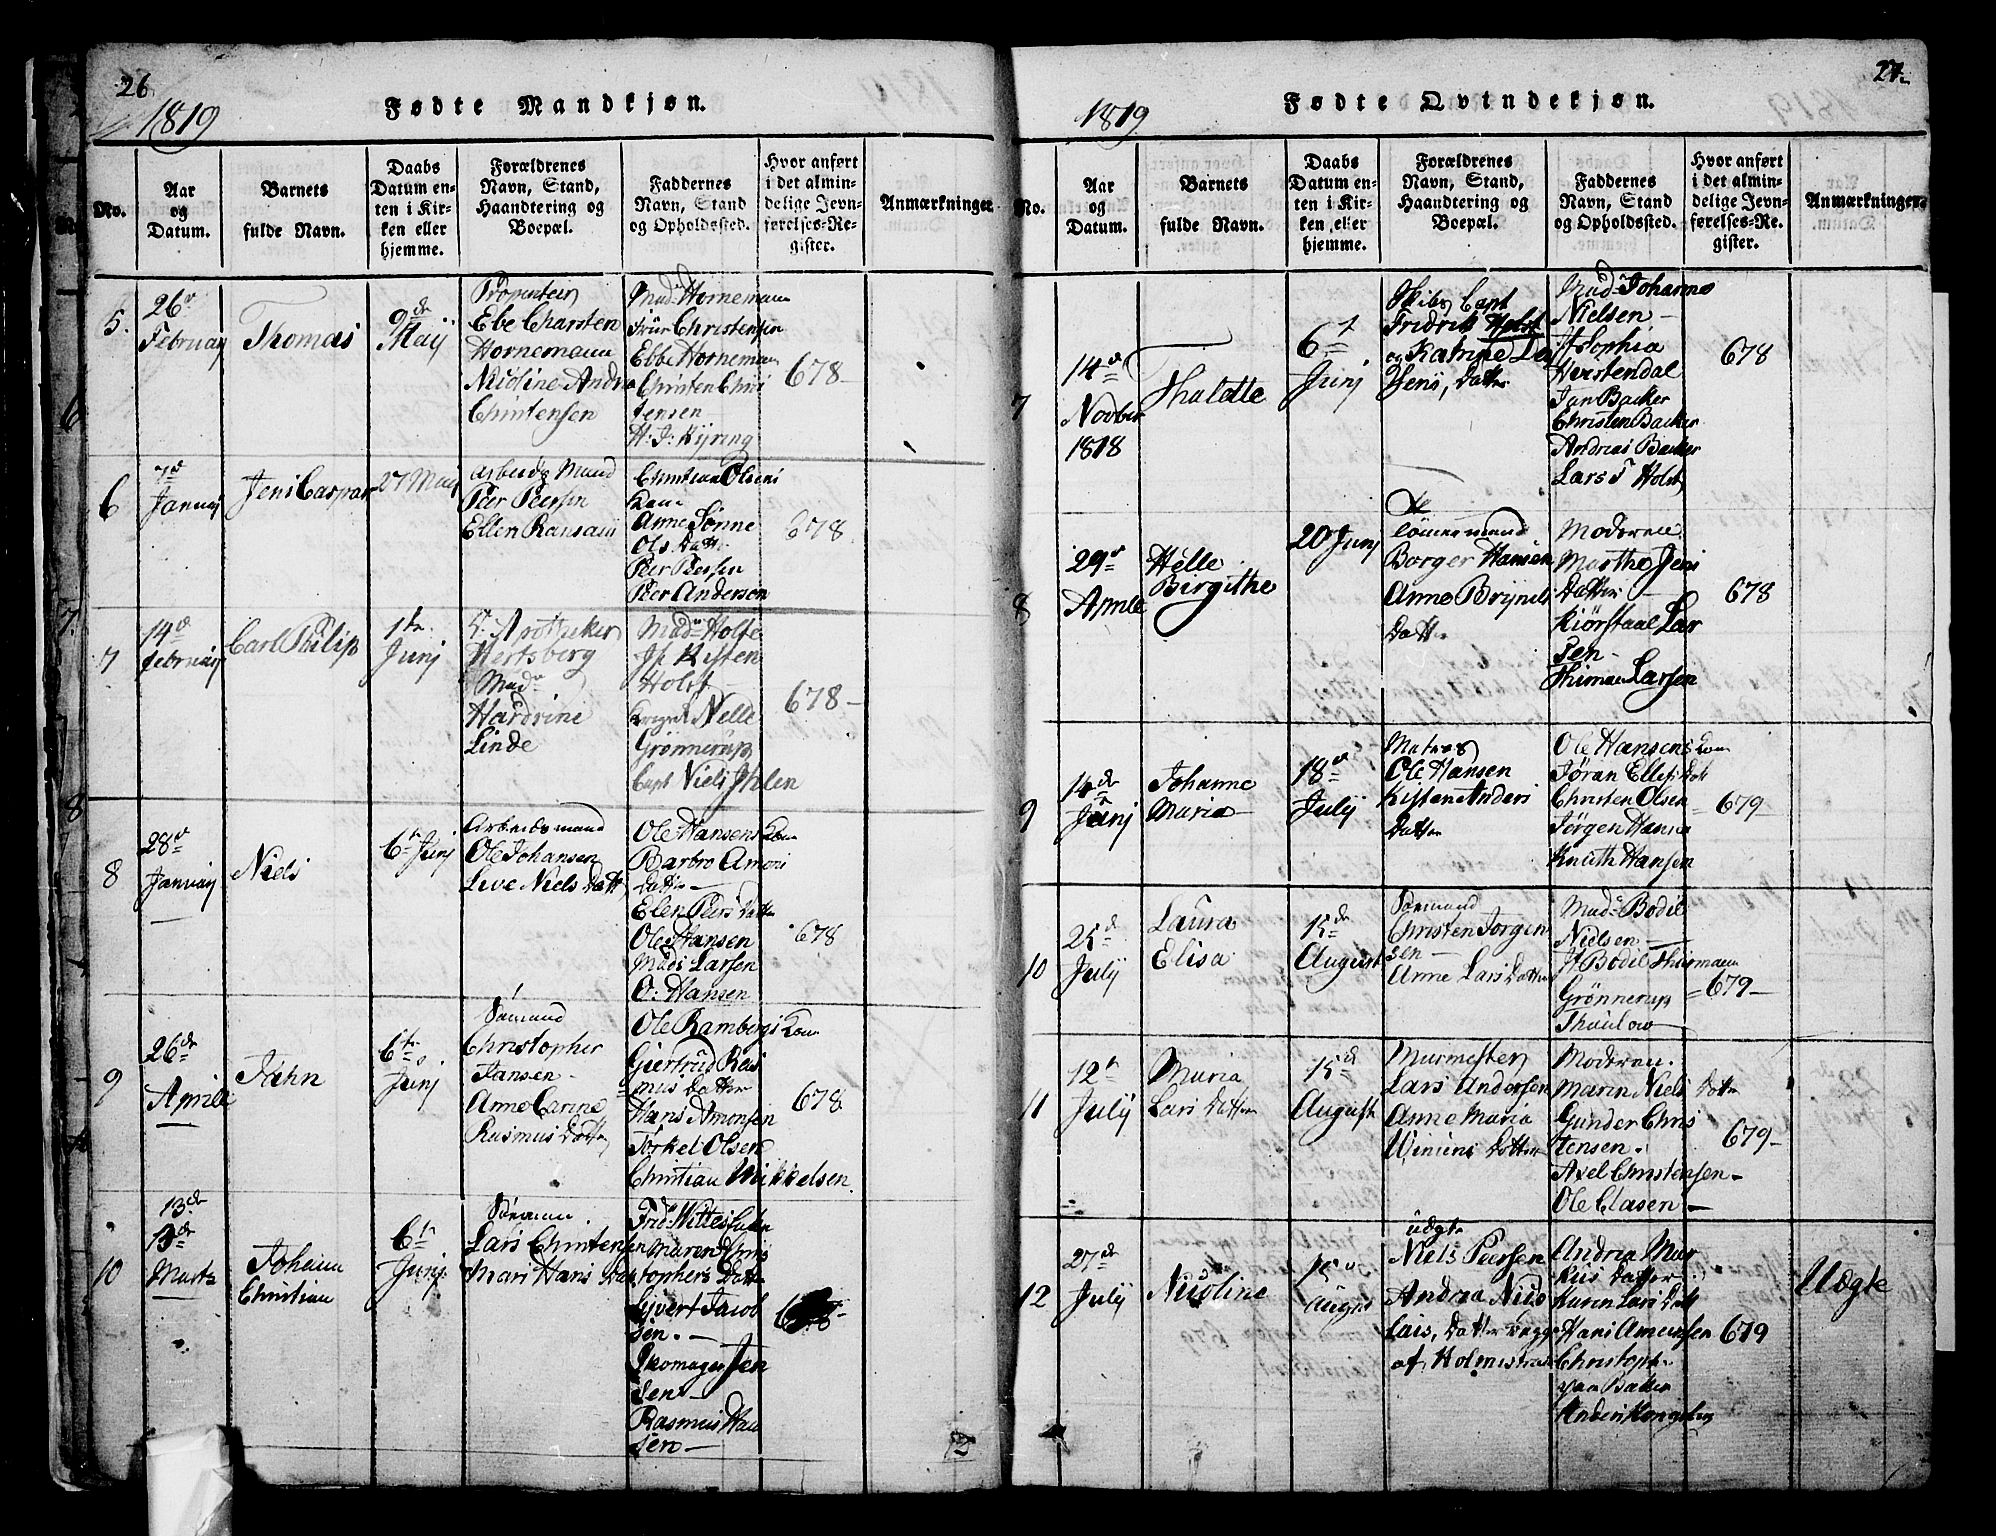 26
1819
Fødte Mandkjøn.
No.
Aar
og
Datum.
Barnets
fulde Navn.
Daabs
Datum en-
ten i Kir-
ken eller
hjemme.
Forældrenes
Navn, Stand,
Haandtering og
Boepæl.
Faddernes
Navn, Stand
og Opholdssted.
Hvor anført
i det almin-
delige Jevn-
førelses-Re-
gister.
Anmærkninger
5.
26
Februay
Thomas
9de
Maij
Ebe Charsten
Hornemann
Nicoline Andrea
Christensen
Mad Hornemann
Frue Christensen
Ebbe Horneman
Christen Chris
tensen
H: J: Kyring
678-
6
7d
Januaij
Jens Caspar
27 Maij
Arbeids Mand
Peer Peersen
Ellen
Christian Olsens
Kone
Anne Sønne
Ols Datt:
Peer Peersen
Peer Anderson
678
7
14d
Februaij
Carl Philip
1te
Junj
Apotheker
Hertsberg
Mad
Hardrine
Linde
Madm Holte
Jf Kisten
Holst
Nelle
Grønnerup
Capt Niels Ihlen
678-
8
28d
Januaij
Niels
6te Junj
Arbeidsmand
Ole Johansen
Live Niels Datt
Ole Hansens Kone
Barbro Amons
Datter
Elen Peers Datter
Ole Hansen
Mads Larsen
O: Hansen
678
9
26de
Aprile
Jahn
6te
Junj
Sømand
Christopher
Jansen
Anne Carine
Rasmus Datter
Ole Rambergs Kone
Giertrud Ras
mus Datter
Hans Amonsen
Torkel Olsen
Christian Mikkelsen
678
10
13de
13de
Marts
Johann
Christian
6te
Junj
Sømann
Lars Christensen
Mari Hans Datt
Maren Chris
tophers Datter
Syvert Jacob
sen.
Skomager Jen
sen
Rasmus Han
sen
27
1819
Fødte Qvindekjøn.
No.
Aar
og
Datum.
Barnets
fulde Navn.
Daabs
Datum en-
ten i Kir-
ken eller
hjemme.
Forældrenes
Navn, Stand,
Haandtering og
Boepæl.
Faddernes
Navn, Stand
og Opholdssted.
Hvor anført
i det almin-
delige Jevn-
førelses-Re-
gister.
Anmærkninger.
7
14de
Novber
1818
Thalette
6te
Junj
Skibs Capt
Fridrik Holst
og Katrine La
Mad Johanne
Nielsen
Jf Sophia
Herstendal
Jan Backer
Christen Backer
Andreas Backer
Lars T Holst
678
8
29de
Aprile
Helle
Birgithe
20 Junj
Tømmermand
Borger Hansen
Anne Brynils
Datter
Moderen
Marthe Jens
Datter
Kiørstaal Lar
sen
Thiman Larsen
678
9
14de
Junj
Johanne
Maria
18de
Julij
Matros
Ole Hansen
Kistene Anders
Datter
Ole Hansens Kone
Jøran Ellefs Datt
Christen Olsen
Jørgen Hansen
Knuth Hansen
679-
10
25de
Julij
Laura
Elisa
15de
August
Sømand
Christen Jorgen
sen
Anne Lars Datter
Mad Bodil
Nielsen
Jf Bodil Thurmann
Grønnerup
Thaulow
679-
11
12te
Julij
Maria
Lars Datter
15de
August
Murmester
Lars Andersen
Anne Maria
Datter
Moderen.
Maren Niels Datter
Gunder Chris
tensen.
Axel Christensen
Ole Clasen
679-
12
27de
Julij
Nicoline
15de
August
Uægte
Niels Peersen
Andrea Nico
lais, Datter begge
af Holmestrand
Andrea Mar
kus Datter
Karen Lars Datt
Hans Amensen
Christoph
van Backer
Anders Kongsberg
679
Uægte